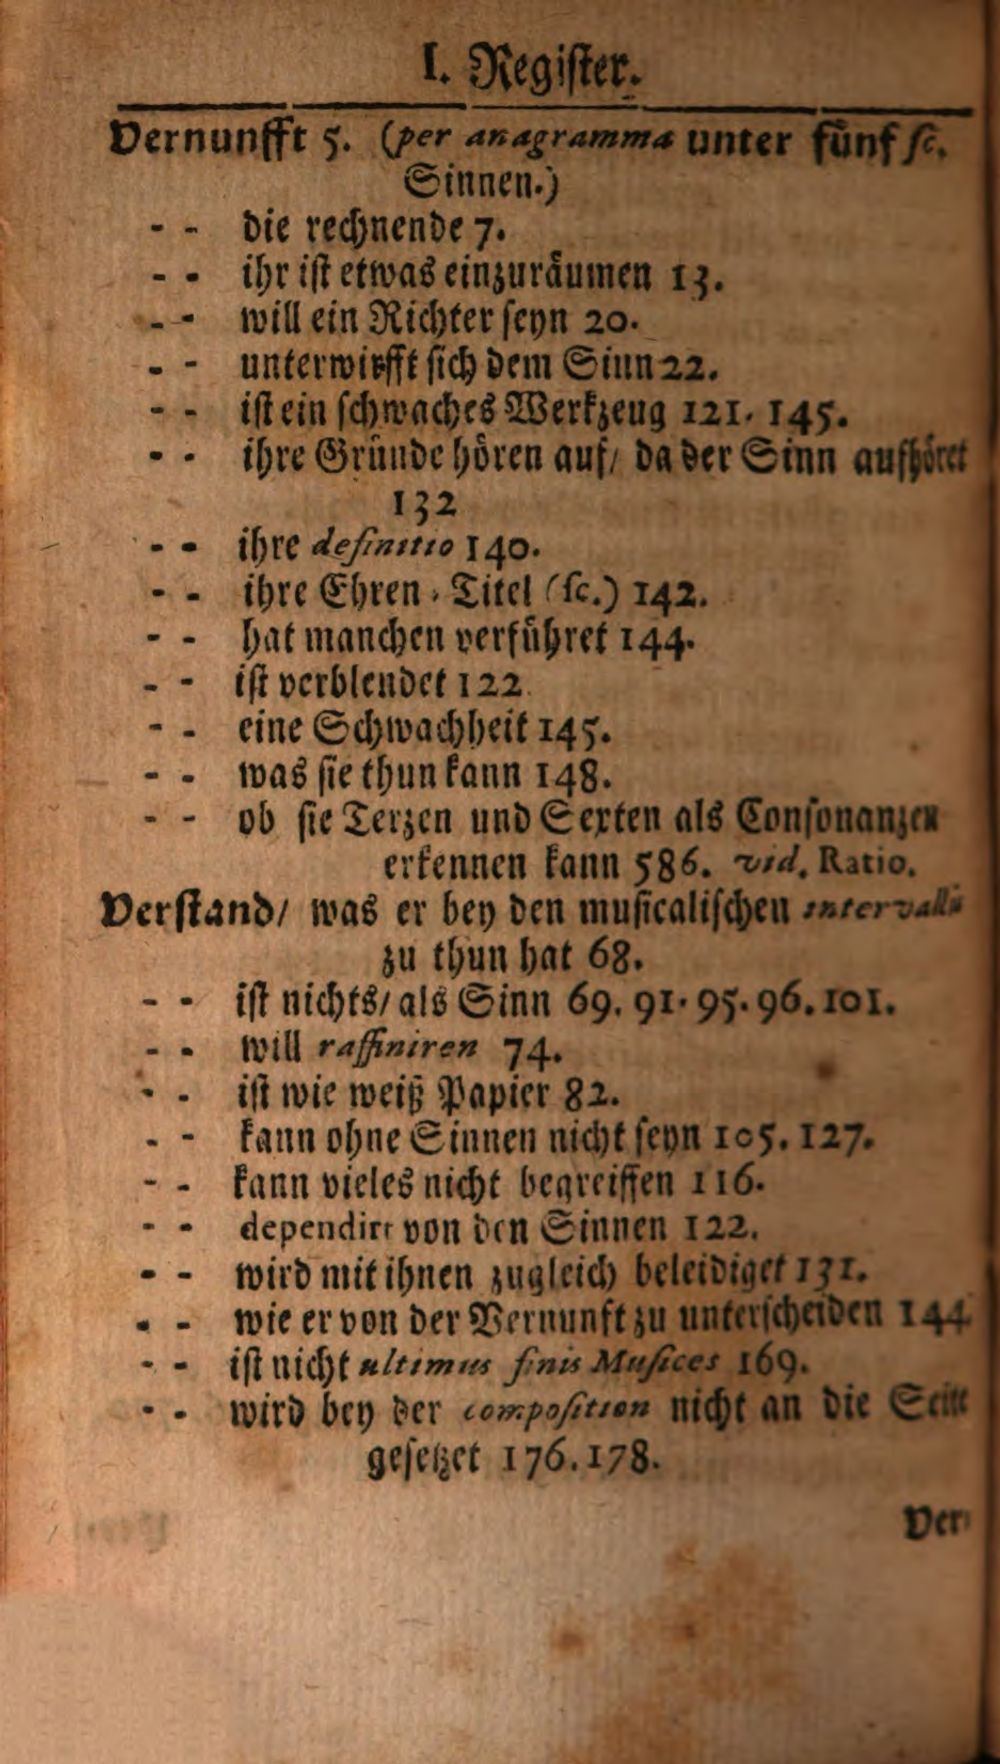 I. Register.
Vernunfft 5. (per anagramma unter fünf sc.
Sinnen.)
- - die rechnende 7.
- - ihr ist etwas einzuräumen 13.
- - will ein Richter seyn 20.
- - unterwirfft sich dem Sinn 22.
- - ist ein schwaches Werkzeug 121. 145.
- - ihre Gründe hören auf/ da der Sinn aufhöret
132
- - ihre definitio 140.
- - ihre Ehren-Titel (sc.) 142.
- - hat manchen verführet 144.
- - ist verblendet 122.
- - eine Schwachheit 145.
- - was sie thun kann 148.
- - ob sie Terzen und Sexten als Consonanzen
erkennen kann 586. vid. Ratio.
Verstand/ was er bey den musicalischen intervallis
zu thun hat 68.
- - ist nichts/ als Sinn 69. 91. 95. 96. 101.
- - will raffiniren 74.
- - ist wie weiß Papier 82.
- - kann ohne Sinnen nicht seyn 105. 127.
- - kann vieles nicht begreiffen 116.
- - dependirt von den Sinnen 122.
- - wird mit ihnen zugleich beleidiget 131.
- - wie er von der Vernunft zu unterscheiden 144
- - ist nicht ultimus finis Musices 169.
- - wird bey der composition nicht an die Seite
gesetzet 176. 178.
Ver-